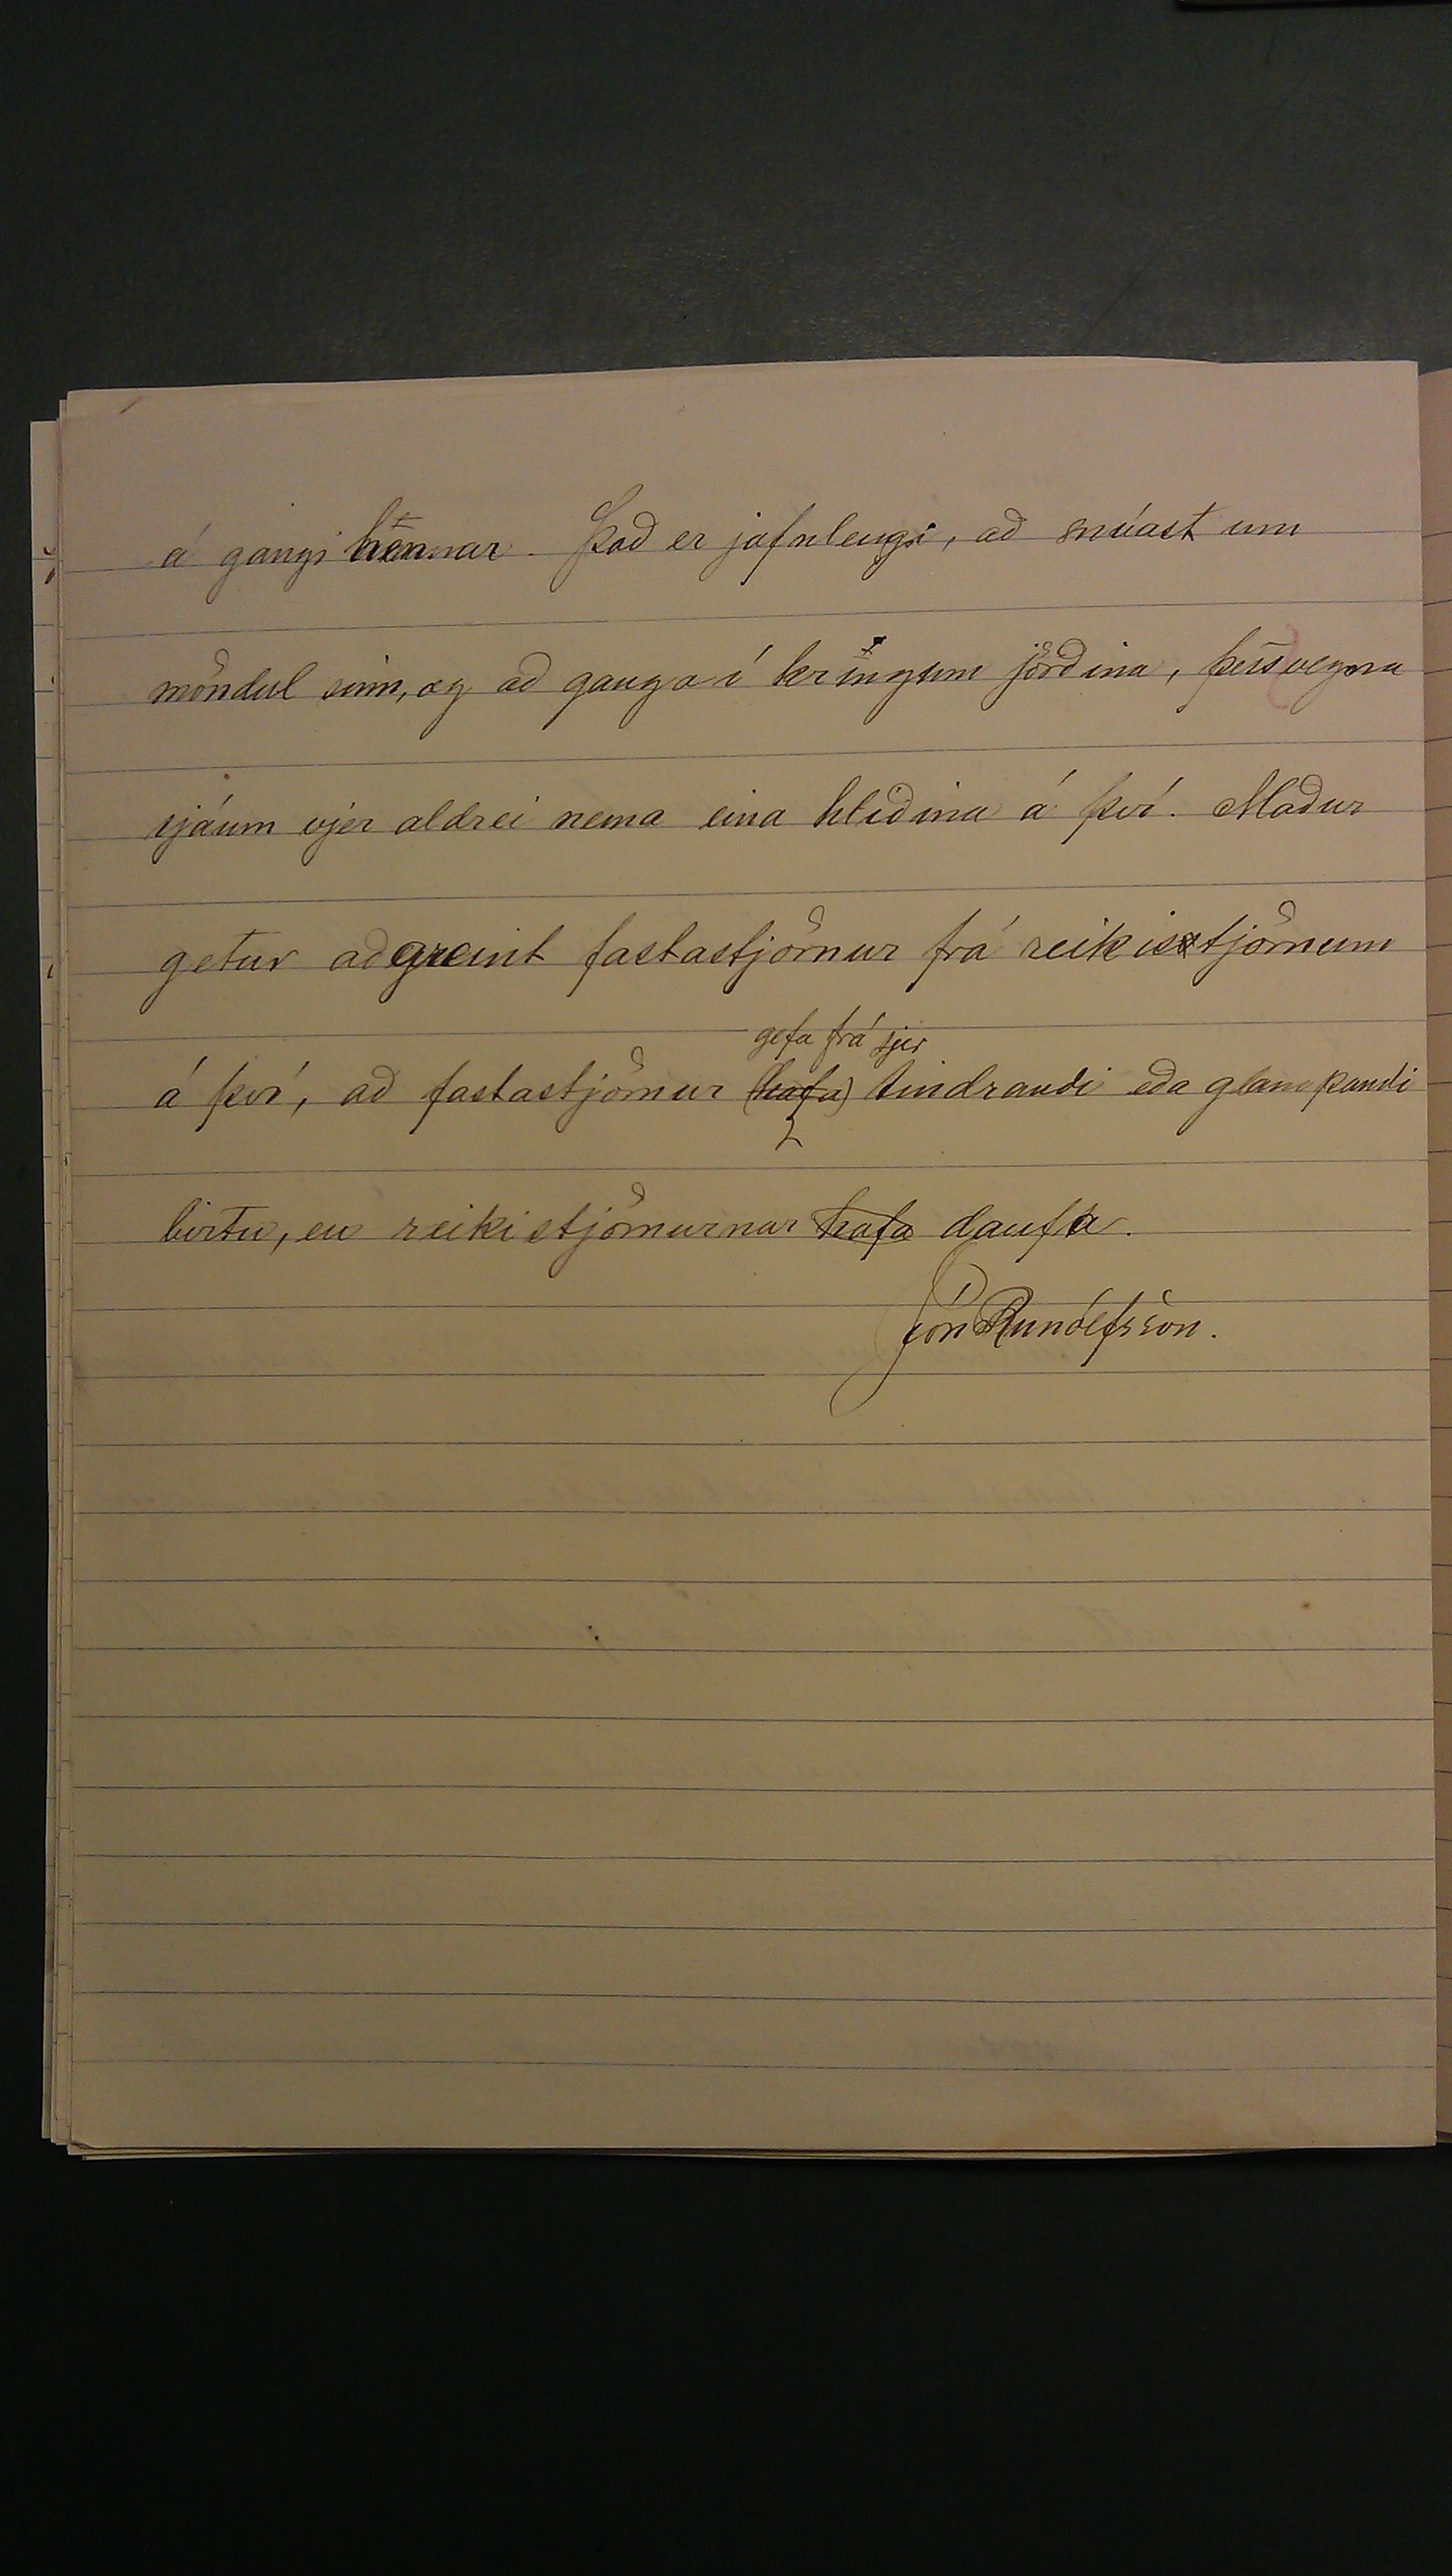 á gangi hennar. Það er jafnlengi, að snúast um
möndul sinn, og að ganga í kringum jörðina, þess vegna
sjáum vjer aldrei nema eina hliðina á því. Maður
getur aðgreint fastastjörnur frá reikistjörnum
gefa frá sjer
á því, að fastastjörnur (hafa) tindrandi eða glampandi
birtu, en reikistjörnurnar hafa daufa.
Jón Runólfsson.